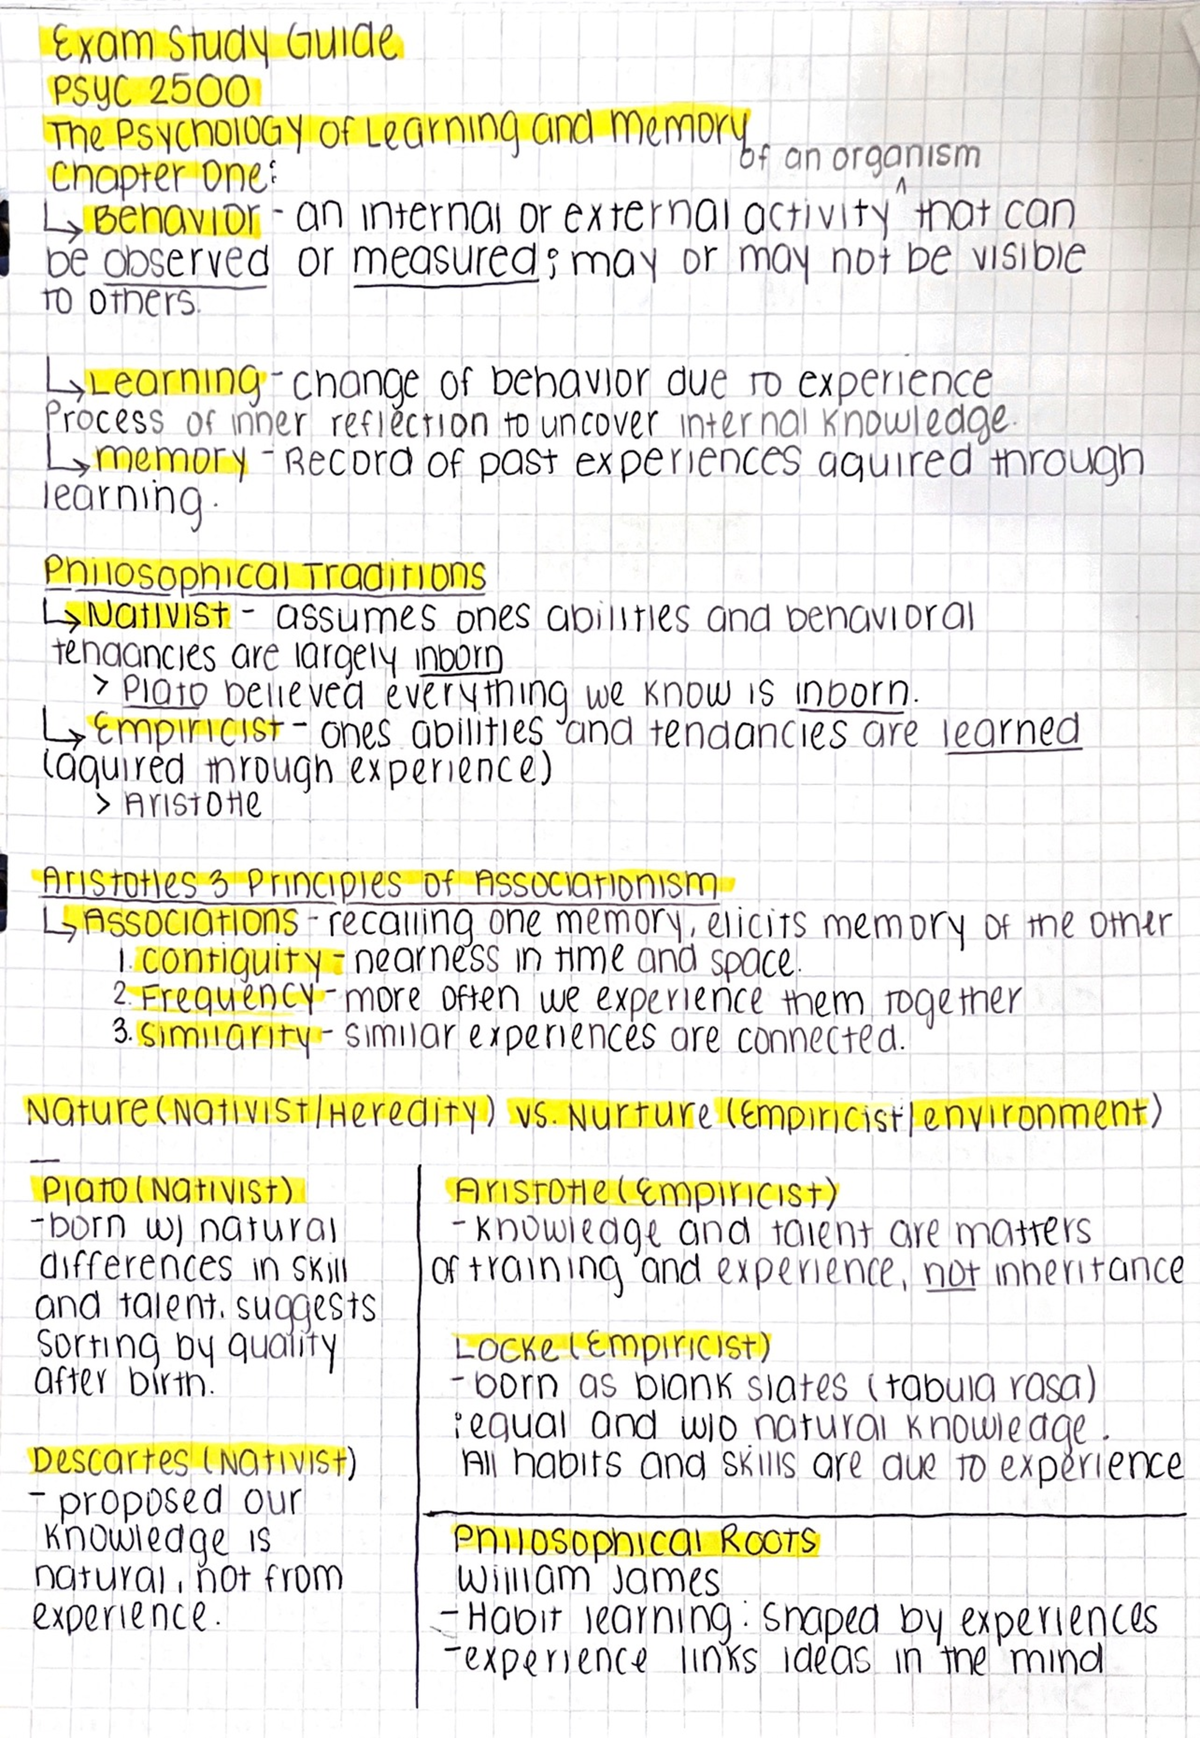 Exam Study Guide
PSYC 2500
The Psychology of Learning and Memory
Chapter One:
of an organism
↳ Behavior - an internal or external activity ^ that can
be observed or measured; may or may not be visible
to others.
↳ Learning - change of behavior due to experience
Process of inner reflection to uncover internal knowledge.
↳ memory - Record of past experiences aquired through
learning.
Philosophical Traditions
↳ Nativist - assumes ones abilities and behavioral
tendancies are largely inborn
> Plato believed everything we know is inborn.
↳ Empiricist - ones abilities and tendancies are learned
(aquired through experience)
> Aristotle
Aristotles 3 Principles of Associationism
↳ Associations - recalling one memory, elicits memory of the other
1. Contiguity - nearness in time and space.
2. Frequency - more often we experience them together
3. Similarity - similar experiences are connected.
Nature (Nativist/Heredity) vs. Nurture (Empiricist/environment)
Plato (Nativist)
- born w/ natural
differences in skill
and talent. suggests
sorting by quality
after birth.
Descartes (Nativist)
- proposed our
knowledge is
natural, not from
experience.
Aristotle (Empiricist)
- knowledge and talent are matters
of training and experience, not inheritance
Locke (Empiricist)
- born as blank slates (tabula rasa)
; equal and w/o natural knowledge.
All habits and skills are due to experience
Philosophical Roots
William James
- Habit learning: shaped by experiences
- experience links ideas in the mind